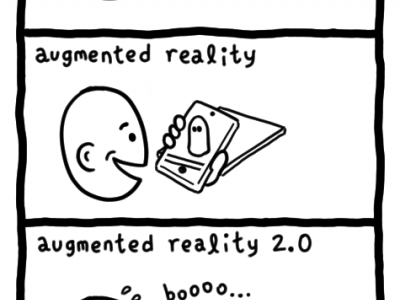 augmented reality
augmented reality 2.0
boooo...